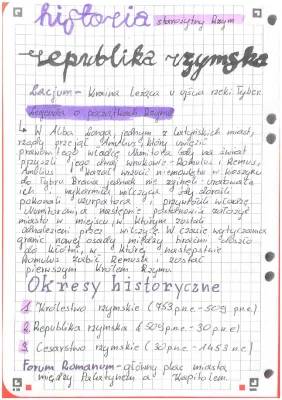 historia
starożytny Rzym
republika rzymska
Lacjum - kraina leżąca u ujścia rzeki Tyber.
Legenda o początkach Rzymu
↳ W Alba Longa, jednym z latyńskich miast,
rządy przejął Amulius, który uwięził
prawowitego władcę Numitora. Gdy na świat
przyszli jego wnukowie - Romulus i Remus,
Amulius kazał wrzucić niemowlęta w koszyku
do Tybru. Bracia jednak nie zginęli - uratowała
ich i wykarmiła wilczyca. Gdy dorośli
pokonali uzurpatora i przywrócili władzę
Numitorowi, a następnie postanowili założyć
miasto w miejscu, w którym zostali
odnalezieni przez wilczycę. W czasie wytyczania
granic nowej osady między braćmi doszło
do kłótni, w której następstwie
Romulus zabił Remusa i został
pierwszym królem Rzymu.
Okresy historyczne
1. Królestwo rzymskie (753 p.n.e - 509 p.n.e)
2. Republika rzymska (509 p.n.e - 30 p.n.e)
3. Cesarstwo rzymskie (30 p.n.e - 1453 n.e)
Forum Romanum - główny plac miasta
między Palatynem a Kapitolem.